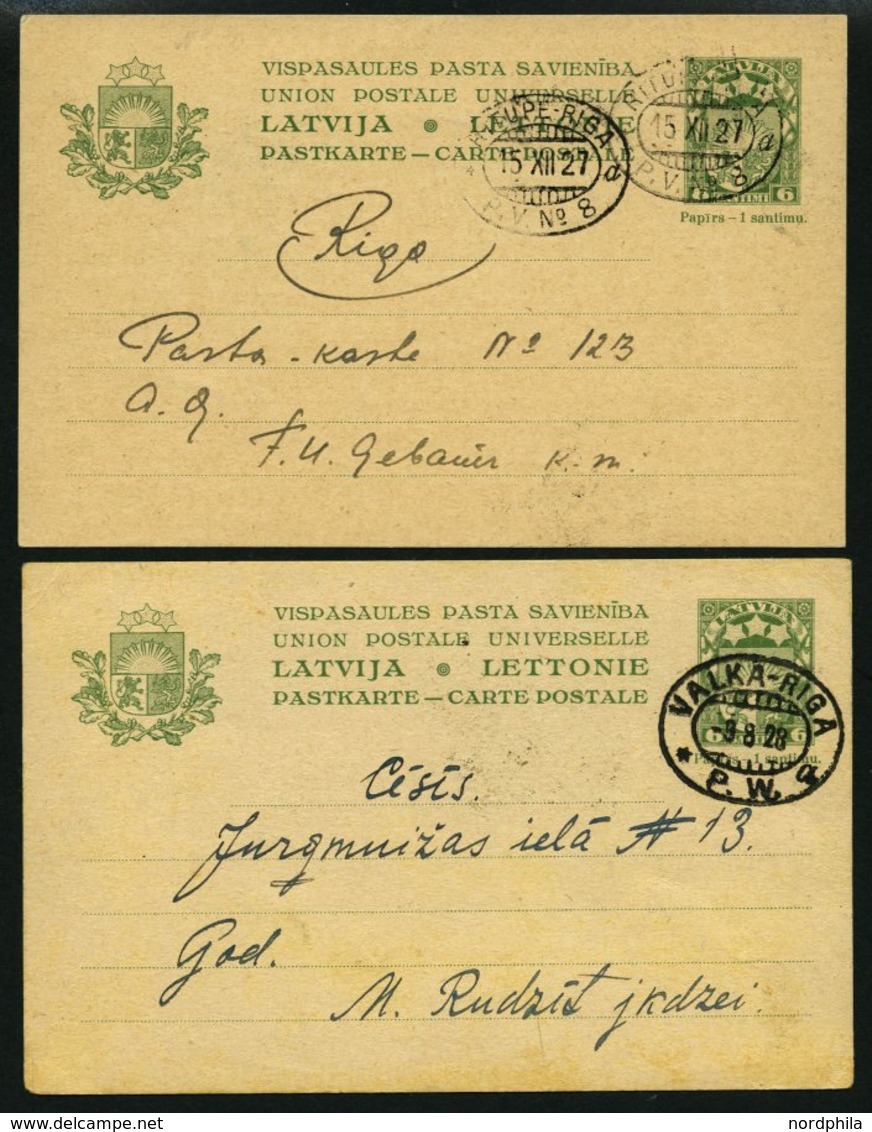 VISPASAULES PASTA SAVIENĪBA
UNION POSTALE UNIVERSELLE
LATVIJA LETTONIE
PASTKARTE — CARTE POSTALE
LATVIJA
6 SANTIMI 6
Papīrs – 1 santimu.
RITUPE-RIGA
15 XII 27
P.V. No 8 a
RITUPE-RIGA
15 XII 27
P.V. No 8 a
Riga
Pasta-kaste No 123
A. G.
F. U. Gebauer k-m.
VISPASAULES PASTA SAVIENĪBA
UNION POSTALE UNIVERSELLE
LATVIJA LETTONIE
PASTKARTE — CARTE POSTALE
LATVIJA
6 SANTIMI 6
Papīrs – 1 santimu.
VALKA-RIGA
-9 8 28
* P. W. a
Cēsīs.
Jurģmuižas ielā # 13.
God.
M. Rudzīt jkdzei
nordphila